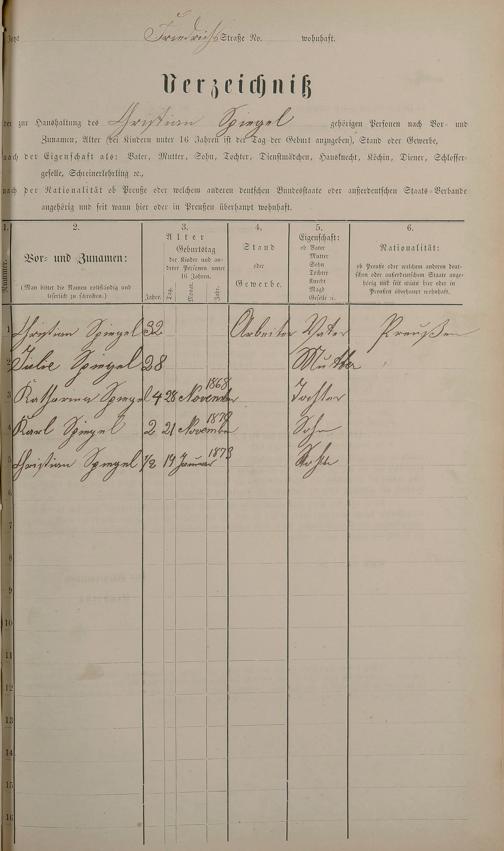 Jetzt Friedrichs Straße No. wohnhaft.
Verzeichniß
der zur Haushaltung des Christian Spiegel gehörigen Personen nach Vor- und
Zunamen, Alter (bei Kindern unter 16 Jahren ist der Tag der Geburt anzugeben), Stand oder Gewerbe,
nach der Eigenschaft als: Vater, Mutter, Sohn, Tochter, Dienstmädchen, Hausknecht, Köchin, Diener, Schlosser-
geselle, Schreinerlehrling ꝛc.,
nach der Nationalität ob Preuße oder welchem anderen deutschen Bundesstaate oder außerdeutschen Staats-Verbande
angehörig und seit wann hier oder in Preußen überhaupt wohnhaft.
1. 2. 3. 4. 5. 6.
Nummer.
Vor- und Zunamen:
(Man bittet die Namen vollständig und
leserlich zu schreiben.)
Alter
Geburtstag
der Kinder und an-
derer Personen unter
16 Jahren.
Jahre. Tag. Monat. Jahr.
Stand
oder
Gewerbe.
Eigenschaft:
ob Vater
Mutter
Sohn
Tochter
Knecht
Magd
Geselle ꝛc.
Nationalität:
ob Preuße oder welchem anderen deut-
schen oder außerdeutschen Staate ange-
hörig und seit wann hier oder in
Preußen überhaupt wohnhaft.
1 Christian Spiegel 32 Arbeiter Vater Preußen
2 Julie Spiegel 28 Mutter
3 Katharina Spiegel 4 28 November 1868 Tochter
4 Karl Spiegel 2 21 November Sohn
5 Christian Spiegel 1/2 14 Januar 1873
6
7
8
9
10
11
12
13
14
15
16